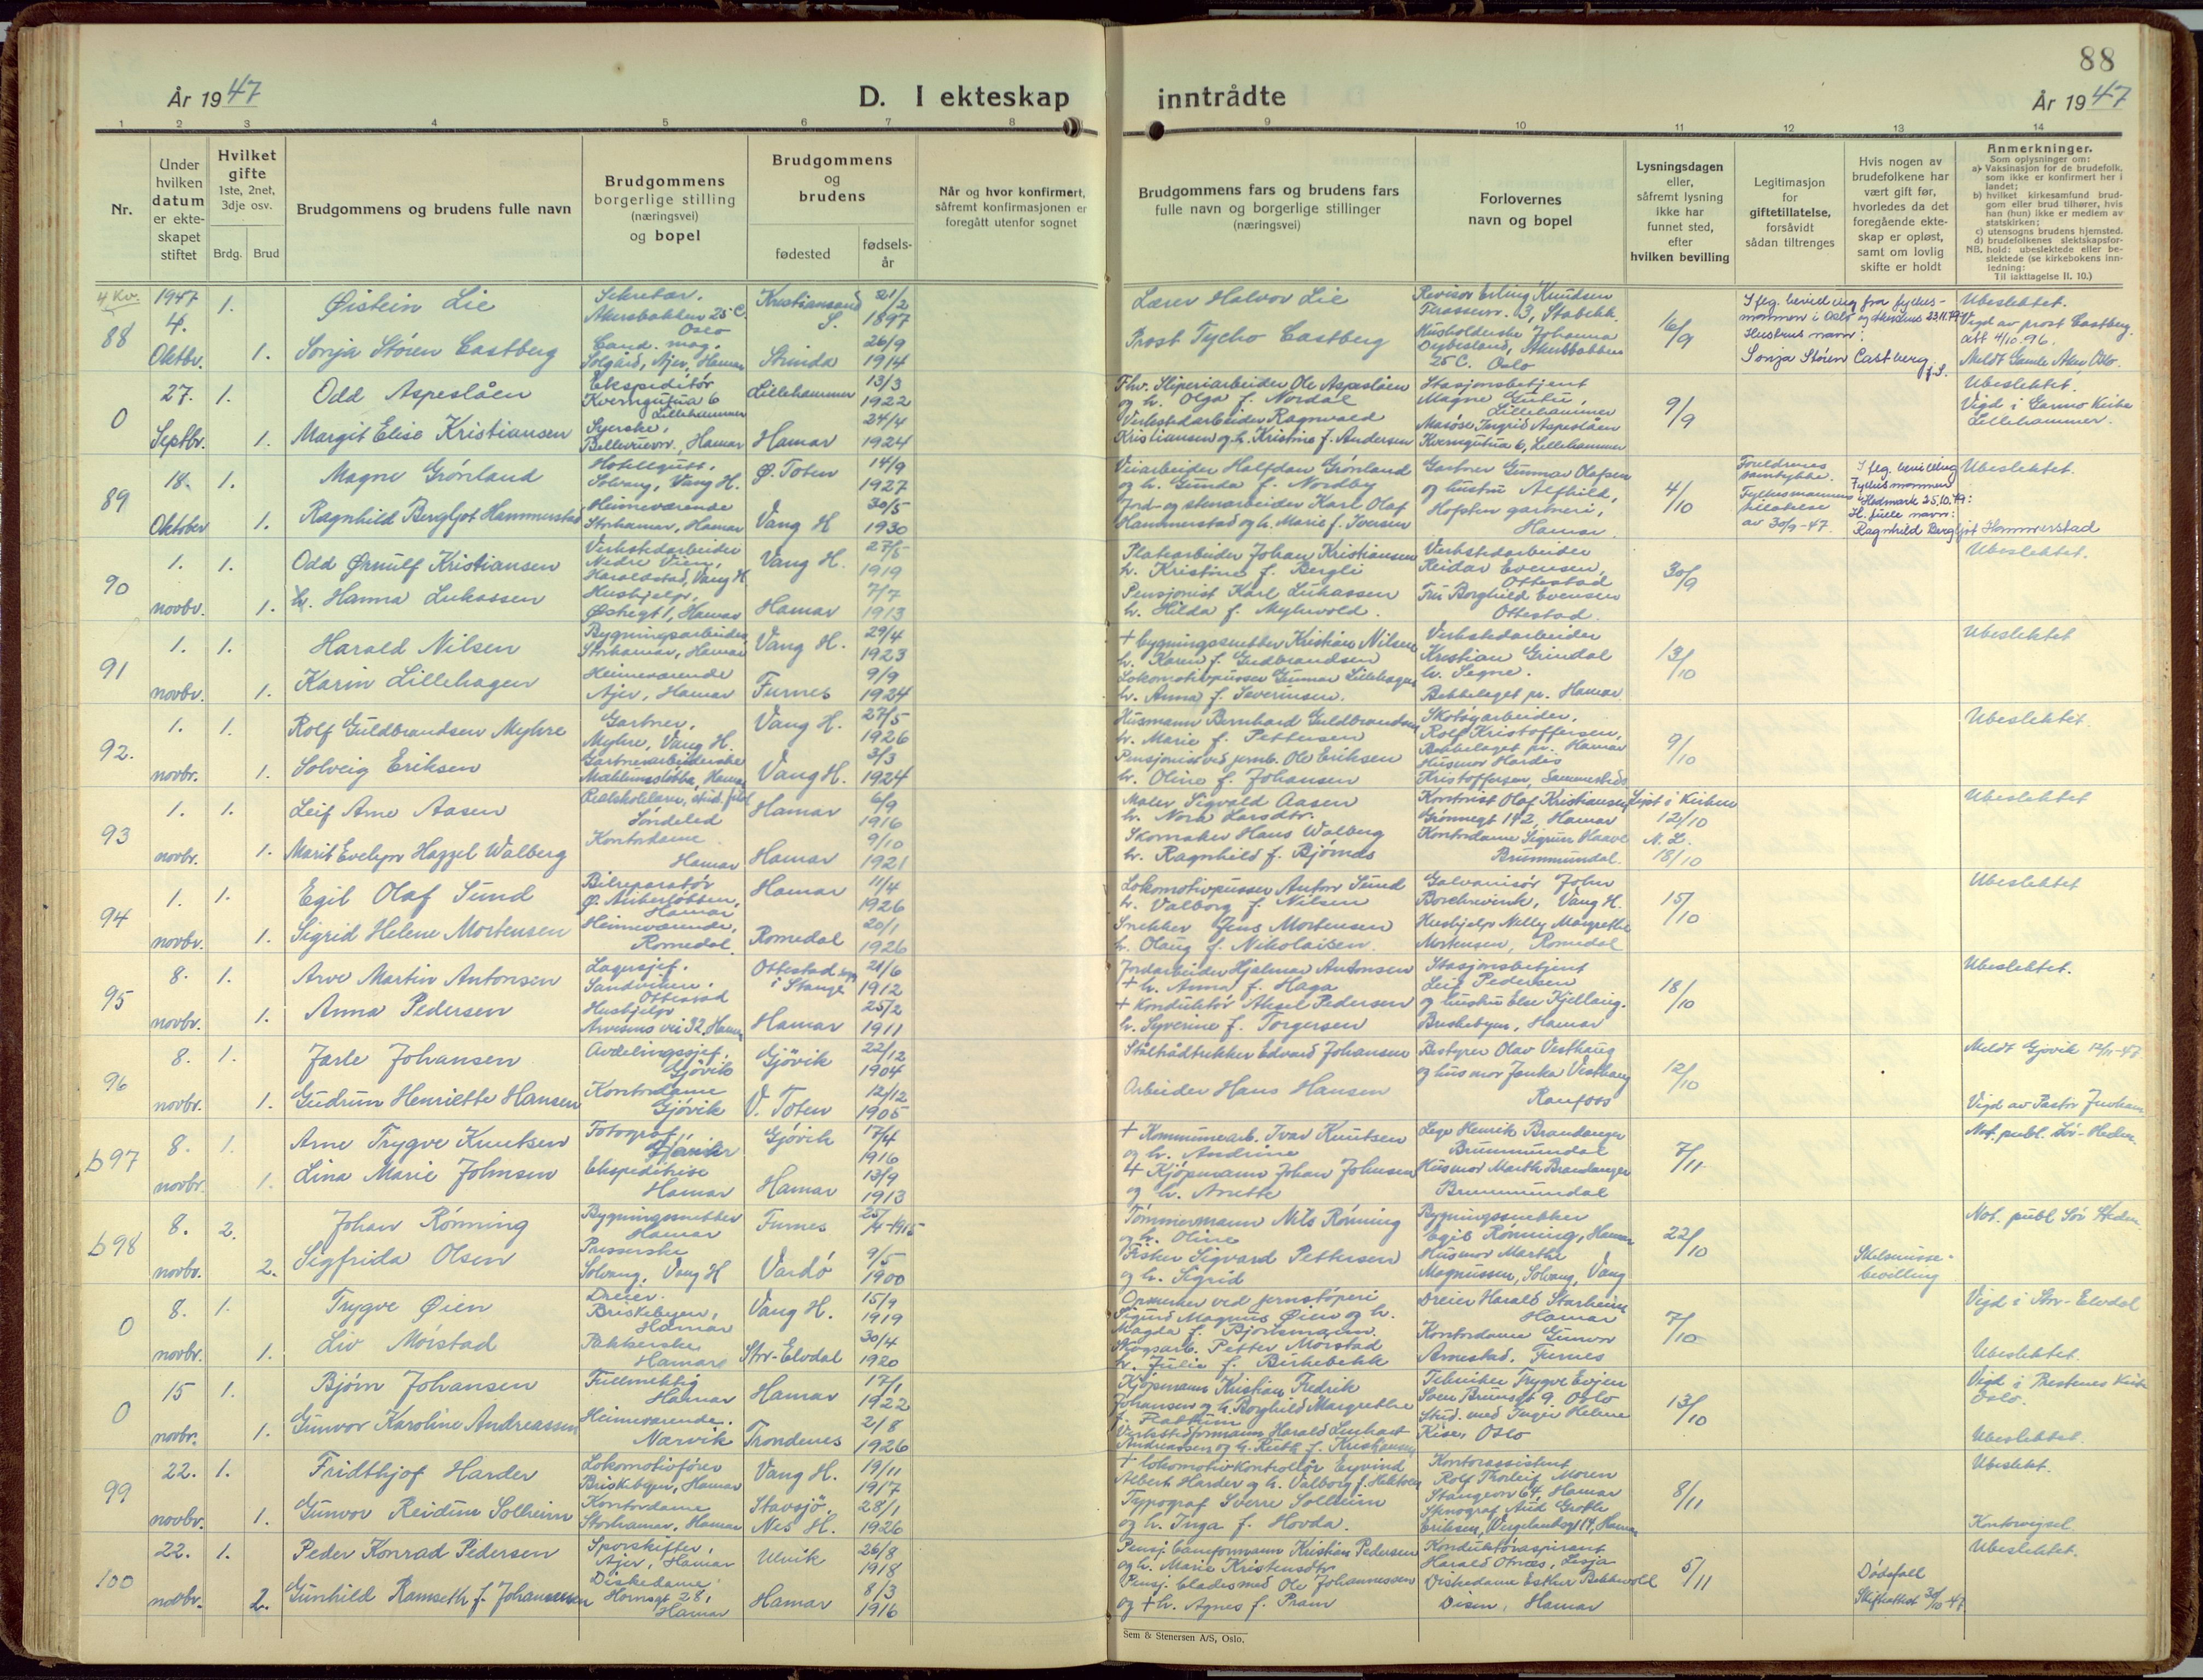 År 1947
D. I ekteskap
1 2 3 4 5 6 7 8
Nr.
Under hvilken datum er ekteskapet stiftet
Hvilket gifte
1ste, 2net, 3dje osv.
Brdg. Brud
Brudgommens og brudens fulle navn
Brudgommens borgerlige stilling (næringsvei) og bopel
Brudgommens og brudens
fødested
fødselsår
Når og hvor konfirmert, såfremt konfirmasjonen er foregått utenfor sognet
4 Kv.
88 1947 4. Oktbr.
1. Øistein Lie
Sekretær, Akersbakken 25 C. Oslo
Kristiansand S.
21/2 1897
1. Sonja Støren Castberg
Cand. mag. Solgård, Ajer, Hamar
Strinda
26/9 1914
0 27. Septbr.
1. Odd Aspeslåen
Ekspeditør Kverngutua 6 Lillehammer
Lillehammer
13/3 1922
1. Margit Elise Kristiansen
Syerske, Bellevuevn., Hamar
Hamar
24/4 1924
89 18. Oktober
1. Magne Grønland
Solvang, Vang H.
Ø. Toten
14/9 1927
1. Ragnhild Bergljot Hammerstad
Heimeværende Storhamar, Hamar
Vang H
30/5 1930
90 1. novbr.
1. Odd Ørnulf Kristiansen
Verkstedarbeider Nedre Vien, Haraldstad, Vang H
Vang H.
27/5 1919
1. Hanna Lukassen
Hushjelp, Østregt 1, Hamar
Hamar
7/7 1913
91 1. novbr.
1. Harald Nilsen
Bygningsarbeider Storhamar, Hamar
Vang H.
29/4 1923
1. Karin Lillehagen
Heimeværende Ajer, Hamar
Furnes
9/9 1924
92. 1. novbr.
1. Rolf Guldbrandsen Myhre
Gartner, Myhre, Vang H.
Vang H.
27/5 1926
1. Solveig Eriksen
Gartnerarbeiderske Hamar
Vang H.
3/3 1924
93 1. novbr.
1. Leif Arne Aasen
Søndeled
Hamar
6/9 1916
1. Marit Evelyn Hazzel Walberg
Kontordame Hamar
Hamar
9/10 1921
94 1. novbr.
1. Egil Olaf Sund
Bilreparatør Hamar
Hamar
11/4 1926
1. Sigrid Helene Mortensen
Heimeværende, Romedal
Romedal
20/1 1926
95 8. novbr.
1. Arve Martin Antonsen
Lagersjef. Sandviken. Ottestad
Ottestad sogn i Stange
21/6 1912
1. Anna Pedersen
Hushjelp Arvesens vei 32. Hamar
Hamar
25/2 1911
96 8. novbr.
1. Jarle Johansen
Avdelingssjef, Gjøvik
Gjøvik
22/12 1904
1. Gudrun Henriette Hansen
Kontordame Gjøvik
V. Toten
12/12 1905
b 97 8. novbr.
1. Arne Trygve Knutsen
Fotograf,
Gjøvik
17/4 1916
1. Lina Marie Johnsen
Ekspeditrise Hamar
Hamar
13/9 1913
b 98 8. novbr.
2. Johan Rønning
Bygningssnekker Hamar
Furnes
25/4 - 1915
2. Sigfrida Olsen
Presserske Solvang, Vang H
Vardø
9/5 1900
0 8. novbr.
1. Trygve Øien
Dreier. Briskebyen, Hamar
Vang H.
15/9 1919
1. Liv Morstad
Pakkerske Hamar
Stor-Elvdal
30/4 1920
0 15 novbr.
1. Bjørn Johansen
Fullmektig Hamar
Hamar
17/1 1922
1. Gunvor Karoline Andreassen
Heimeværende. Narvik
Trondenes
2/8 1926
99 22. novbr.
1. Fridthjof Harder
Lokomotivfører Briskebyen, Hamar
Vang H.
19/11 1917
1. Gunvor Reidun Solheim
Kontordame Storhamar, Hamar
Stavsjø, Nes H.
28/1 1926
100 22. novbr.
1. Peder Konrad Pedersen
Sporskifter, Ajer, Hamar
Ulvik
26/8 1918
2. Gunhild Ramseth f. Johannessen
Diskedame Hornsgt 28, Hamar
Hamar
8/3 1916
88
inntrådte
År 1947
9 10 11 12 13 14
Brudgommens fars og brudens fars fulle navn og borgerlige stillinger (næringsvei)
Forlovernes navn og bopel
Lysningsdagen eller, såfremt lysning ikke har funnet sted, efter hvilken bevilling
Legitimasjon for giftetillatelse, forsåvidt sådan tiltrenges
Hvis nogen av brudefolkene har vært gift før, hvorledes da det foregående ekteskap er opløst, samt om lovlig skifte er holdt
Anmerkninger.
Som oplysninger om:
a) Vaksinasjon for de brudefolk, som ikke er konfirmert her i landet;
b) hvilket kirkesamfund brudgom eller brud tilhører, hvis han (hun) ikke er medlem av statskirken;
c) utensogns brudens hjemsted.
d) brudefolkenes slektskapsforhold: ubeslektede eller beslektede (se kirkebokens innledning:
NB.
Til iakttagelse II. 10.)
Lærer Halvor Lie
Prost Tycho Castberg
Revisor Erling Knudsen Stabekk. Husholderske Johanna 25 C. Oslo
16/9
I flg. bevilling fra fylkesmannen i Oslo og Akershus 23.11.79
Hustrus navn:
Sonja Støren Castberg
Ubeslektet. Vigd av prost Castberg.
Fhv. Sliperiarbeider Ole Aspeslåen og h. Olga f. Nordal
Verkstedarbeider Ragnvald Kristiansen og h. Kristine f. Andersen
Stasjonsbetjent Magne Lillehammer Ingrid Aspeslåen Kverngutua 6, Lillehammer
9/9
Ubeslektet. Vigd i Garmo Kirke Lillehammer.
Veiarbeider Halfdan Grønland og h. Gunda f. Nordby
Jord- og stenarbeider Karl Olaf Hammerstad og h. Marie f. Iversen
Gartner Gunnar Olafsen og hustru Alfhild, gartneri, Hamar.
4/10
Foreldrenes samtykke. Fylkesmannens tillatelse av 30/9-47.
I flg. bevilling Fylkesmannen Hedmark 25.10.79: H. fulle navn: Ragnhild Bergljot Hammerstad
Ubeslektet.
Platearbeider Johan Kristiansen h. Kristine f. Bergli
Pensjonist Karl Lukassen h. Hilda f. Myhrvold.
Verkstedarbeider Reidar Evensen, Ottestad Fru Borghild Evensen Ottestad.
30/9
Ubeslektet.
+ bygningssnekker Kristian Nilsen h. Karen f. Gudbrandsen
Lokomotivpusser Gunnar Lillehagen h. Anna f. Severinsen.
Verkstedarbeider Kristian Grindal h. Segne. Bekkelaget pr. Hamar
13/10
Ubeslektet
Husmann Bernhard Guldbrandsen h. Marie f. Pettersen
Pensjonist ved jernb. Ole Eriksen h. Oline f. Johansen
Skotøyarbeider, Rolf Kristoffersen, Bekkelaget pr. Hamar Husmor Hardis Kristoffersen, Sammesteds
9/10
Ubeslektet.
Maler Sigvald Aasen h. Nora Larsdtr.
Skomaker Hans Walberg h. Ragnhild f. Bjørnes
Kontorist Olaf Kristiansen Grønnegt 142, Hamar Kontordame Sigrun Haave Brummundal.
Lyst i Kirken 12/10 N. L. 18/10
Ubeslektet
Lokomotivpusser Anton Sund h. Valborg f. Nilsen
Snekker Jens Mortensen h. Olaug f. Nikolaisen.
Galvanisør John Borchrevink, Vang H. Hushjelp Nelly Margrethe Mortensen, Romedal
15/10
Ubeslektet
Jordarbeider Hjalmar Antonsen + h. Anna f. Haga
+ Konduktør Aksel Pedersen h. Syverine f. Torgersen
Stasjonsbetjent Leif Pedersen og hustru Else Kjellaug. Briskebyen, Hamar
18/10
Ubeslektet.
Ståltrådtrekker Edvard Johansen
Arbeider Hans Hansen
Bestyrer Olav Vesthaug og husmor Jenka Vesthaug Raufoss
12/10
Meldt Gjøvik 12/11-47
Vigd av Pastor
+ Kommunearb. Ivar Knutsen og h. Andrine
+ Kjøpmann Johan Johnsen og h. Anette
Lege Henrik Brandanger Brummundal Husmor Marth Brandanger Brummundal
7/11
Not. publ. Sør-Hedm.
Tømmermann Nils Rønning og h. Oline
Fisker Sigvard Pettersen og h. Sigrid
Bygningssnekker Egil Rønning, Hamar Husmor Marthe Magnussen, Solvang, Vang
22/10
Skilsmissebevilling
Not. publ Sør Hedm.
Opmerker ved jernstøperi Sigurd Magnus Øien og h. Magda f. Bjorksmann.
Skogsarb. Petter Morstad h. Julie f. Birkebekk
Dreier Harald Starheim Hamar Kontordame Gunvor Arnestad. Furnes
7/10
Vigd i Stor-Elvdal
Ubeslektet.
Kjøpmann Kristian Fredrik Johansen og h. Borghild Margrethe f.
Verkstedformann Harald Lenhart Andreassen og h. Ruth f. Kristiansen
Tekniker Trygve Evjen 9, Oslo Stud. med Inger Helene Kise, Oslo
13/10
Vigd i Prestenes Kirke Oslo.
Ubeslektet.
+ lokomotivkontrollør Eyvind Albert Harder og h. Valborg f. Hektoen
Typograf Sverre Solheim og h. Inga f. Hovda.
Kontorassistent Rolf Thorleif Moren Stangevn 64, Hamar Stenograf Aud Grethe Eriksen, Wergelandsgt 14, Hamar
8/11
Ubeslekt.
Kontorvigsel.
Pensj. baneformann Kristian Pedersen og h. Marie Kristensdtr
Pensj. bladesmed Ole Johannessen og + h. Agnes f. Pram
Konduktøraspirant Harald Ofnæs, Lesja Diskedame Esther Bekkevold Disen, Hamar
5/11
Dødsfall
Skifteattest 30/10-47
Ubeslektet.
Sem & Stenersen A/S, Oslo.